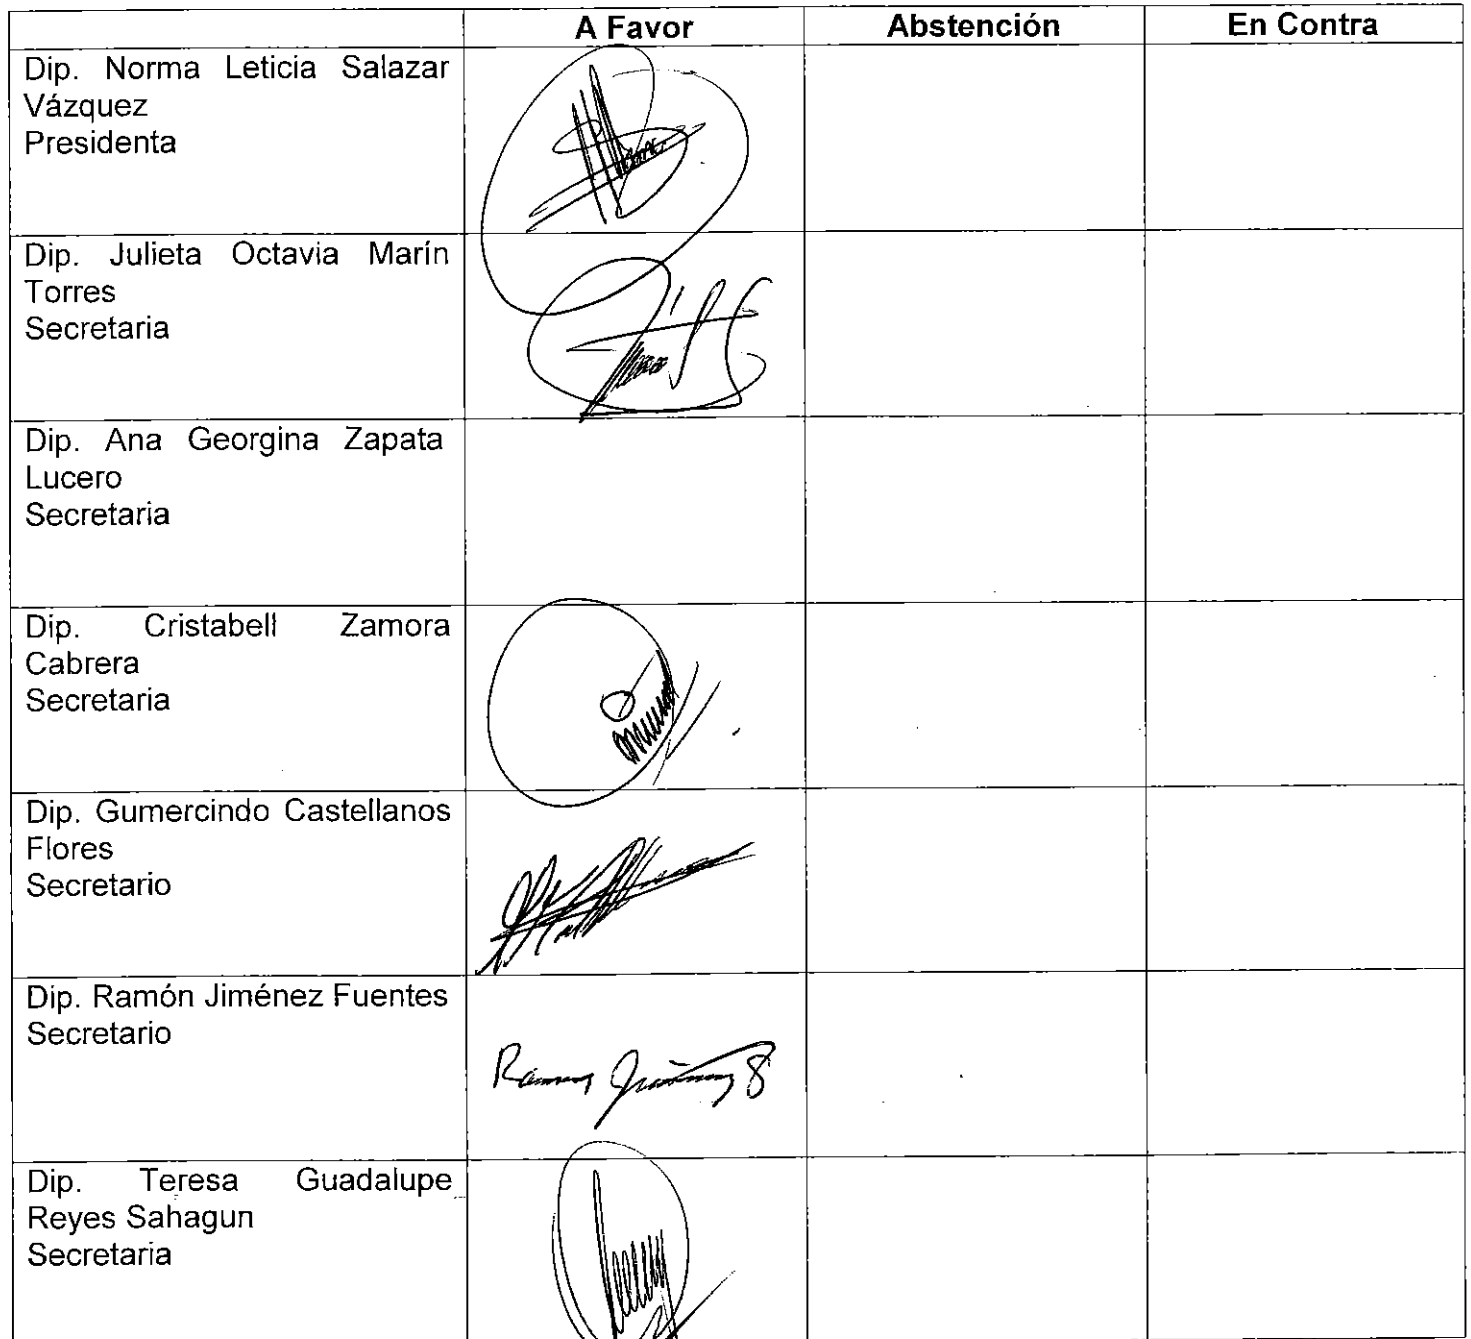 A Favor Abstención En Contra
Dip. Norma Leticia Salazar
Vázquez
Presidenta
Dip. Julieta Octavia Marín
Torres
Secretaria
Dip. Ana Georgina Zapata
Lucero
Secretaria
Dip. Cristabell Zamora
Cabrera
Secretaria
Dip. Gumercindo Castellanos
Flores
Secretario
Dip. Ramón Jiménez Fuentes
Secretario
Dip. Teresa Guadalupe
Reyes Sahagun
Secretaria